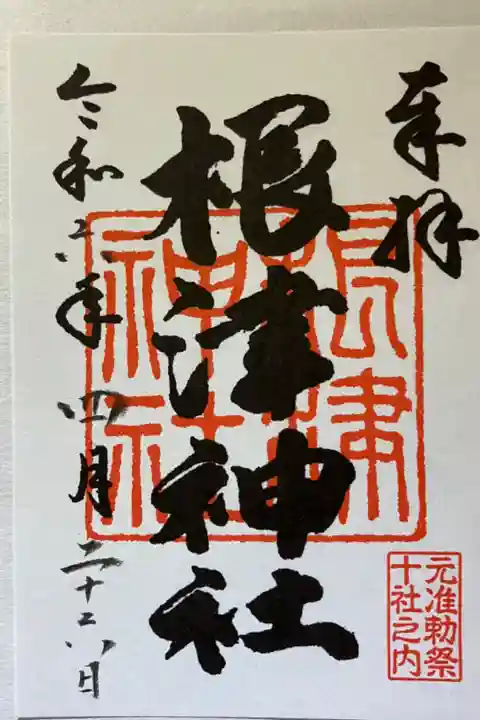 奉拝
根津神社
根津
神社
元准勅祭
十社之内
令和六年四月二十六日